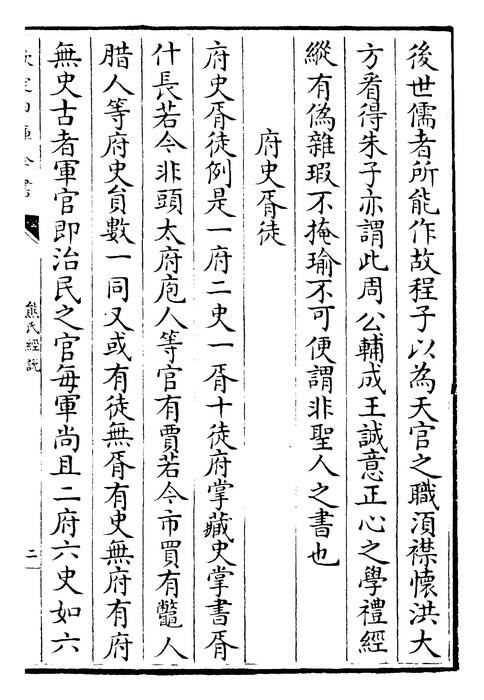 後世儒者所能作故程子以為天官之職湏襟懷洪大
方看得朱子亦謂此周公輔成王誠意正心之學禮經
縱有偽雜瑕不掩瑜不可便謂非聖人之書也
府史胥徒
府史胥徒例是一府二史一胥十徒府掌藏史掌書胥
什長若今非頭太府庖人等官有賈若今市買有鼈人
腊人等府史負數一同又或有徒無胥有史無府有府
無史古者軍官即治民之官每軍尚且二府六史如六
欽定四庫全書
熊氏經說
二